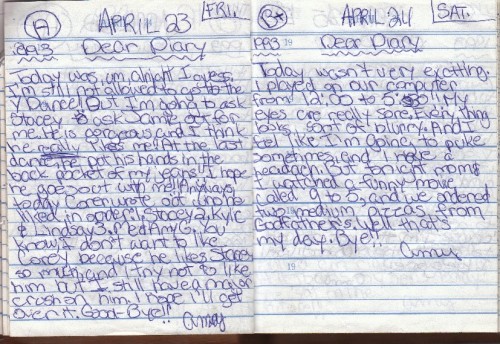 A
APRIL 23
FRI.
1993
Dear Diary
Today was, um, alright I guess.
I'm still not allowed to go to the
Y Dance! But I'm going to ask
Stacey to ask Jamie out for
me. He is gorgeous and I think
he really likes me! At the last
dance he put his hands in the
back pocket of my jeans!! I hope
he goes out with me!! Anyways,
today Corey wrote out who he
liked in order! Stacey 2, Kylc
& Lindsay 3. Me & Amy G. You
know, I don't want to like
Corey because he likes Stacey
so much, and I try not to like
him but I still have a major
crush on him. I hope I'll get
over it. Good-Bye!!
Amy
APRIL 24
SAT.
1993 19
Dear Diary
Today wasn't very exciting.
I played on our computer
from 12:00 to 5:00! My
eyes are really sore. Everything
looks sort of blurry. And I
feel like I'm going to puke
sometimes, and I have a
headach. But tonight mom &
I watched a funny movie
called 9 to 5, and we ordered
two medium pizzas from
Godfather's. Well that's
my day. Bye!!
Amy
19